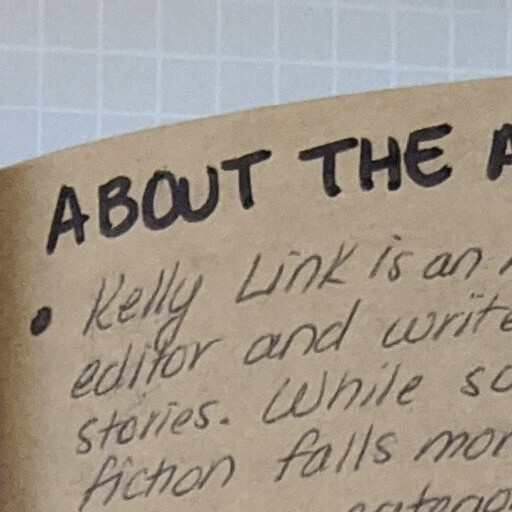 ABOUT THE A
• Kelly Link is an
editor and write
stories. While so
fiction falls mor